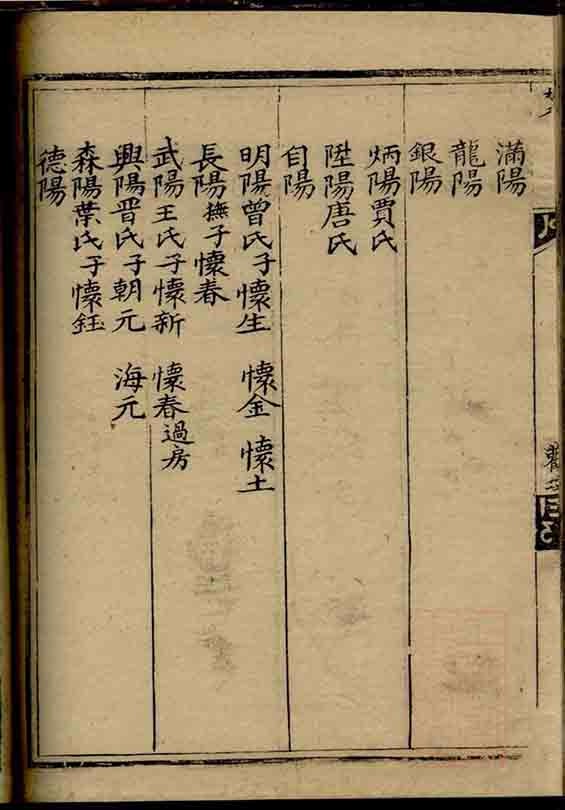 滿陽
龍陽
銀陽
炳陽賈氏
陞陽唐氏
自陽
明陽曾氏子懷生 懷金 懷土
長陽撫子懷春
武陽王氏子懷新 懷春過房
興陽晋氏子朝元 海元
森陽葉氏子懷鈺
德陽